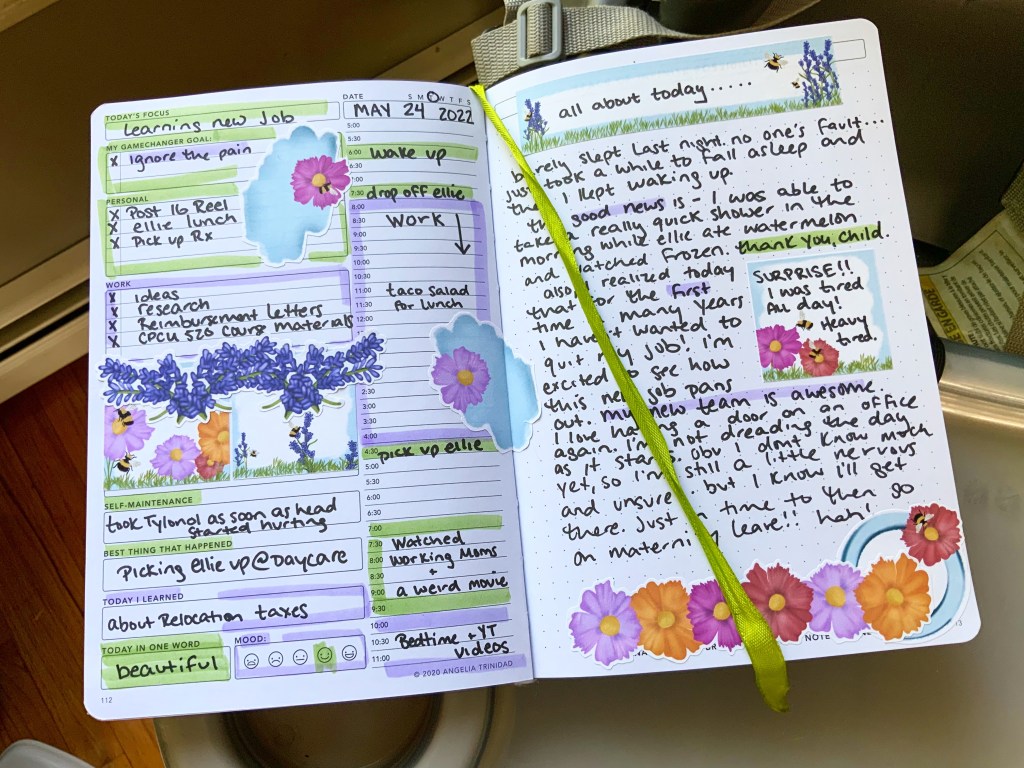 TODAY'S FOCUS
Learning new Job
MY GAMECHANGER GOAL:
X Ignore the pain
PERSONAL
X Post 16 Reel
X ellie lunch
X Pick up Rx
WORK
X ideas
X research
X Reimbursement letters
X CPCU 520 Course materials
SELF-MAINTENANCE
took Tylonol as soon as head
started hurting
BEST THING THAT HAPPENED
Picking Ellie up @ Daycare
TODAY I LEARNED
about Relocation taxes
TODAY IN ONE WORD
beautiful
MOOD:
112
DATE
S M T W T F S
MAY 24 2022
5:00
5:30
6:00 wake up
6:30
7:30 drop off ellie
8:00
8:30 Work
9:00
9:30
10:00
10:30
11:00 taco salad
11:30 for lunch
12:00
2:30
3:00
3:30
4:00
4:30 pick up ellie
5:00
5:30
6:00
6:30
7:00
7:30 Watched
8:00 Working Moms
8:30 +
9:00 a weird movie
9:30
10:00
10:30 Bedtime + YT
11:00 videos
© 2020 ANGELIA TRINIDAD
all about today.....
barely slept last night. no one's fault...
just took a while to fall asleep and
then I kept waking up.
the good news is - I was able to
take a really quick shower in the
morning while ellie ate watermelon
and watched frozen. thank you, child.
also, realized today
that for the first
time in many years
I haven't wanted to
quit my job! I'm
excited to see how
this new job pans
out. my new team is awesome.
I love having a door on an office
again. I'm not dreading the day
as it starts. Obv I dont know much
yet, so I'm still a little nervous
and unsure, but I know I'll get
there. Just in time to then go
on maternity leave!! hah!
SURPRISE!!
I was tired
ALL day!
Heavy
tired.
NOTE